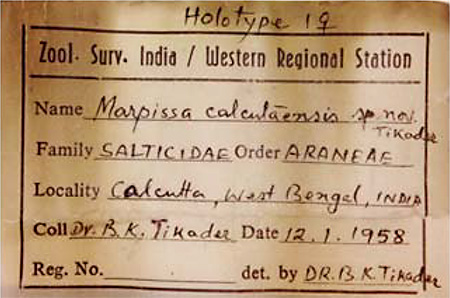 Holotype 1♀
Zool. Surv. India / Western Regional Station
Name Marpissa calcutaensis sp. nov.
Tikader
Family SALTICIDAE Order ARANEAE
Locality Calcutta, West Bengal, INDIA
Coll Dr. B. K. Tikader Date 12.1.1958
Reg. No. det. by DR. B. K. Tikader